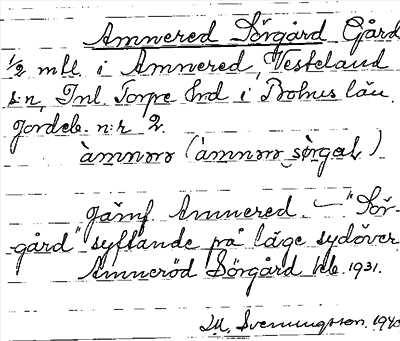 Amnered Sörgård Gård
1/2 mtl. i Amnered, Västerlanda
s:n, Inl. Torpe hd i Bohus län.
Jordeb. n:r 2.
àmnər (àmnər sǫ̀rgaḷ)
Jämf. Amnered — "Sör-
gård" syftande på läge sydöver.
Amneröd Sörgård kb. 1931.
M. Svenningsson. 1940